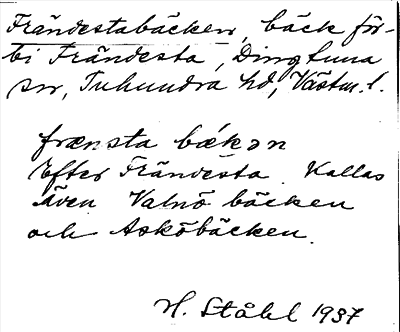 Frändestabäcken, bäck för-
bi Frändesta, Dingtuna
sn, Tuhundra hd, Västm. l.
frænsta bækən
Efter Frändesta. Kallas
även Valnö bäcken
och Asköbäcken.
H. Ståhl 1937